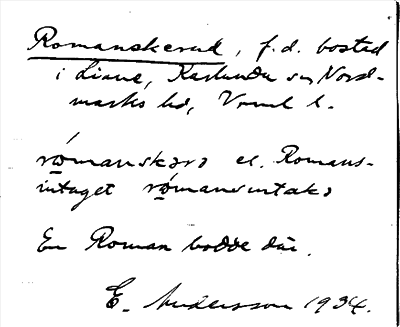 Romanskerud, f.d. bostad
i Liane, Karlanda sn, Nord-
marks hd, Vrml l.
rómanskərə el. Romans-
intaget rómansintakə
En Roman bodde där.
E. Andersson 1934.